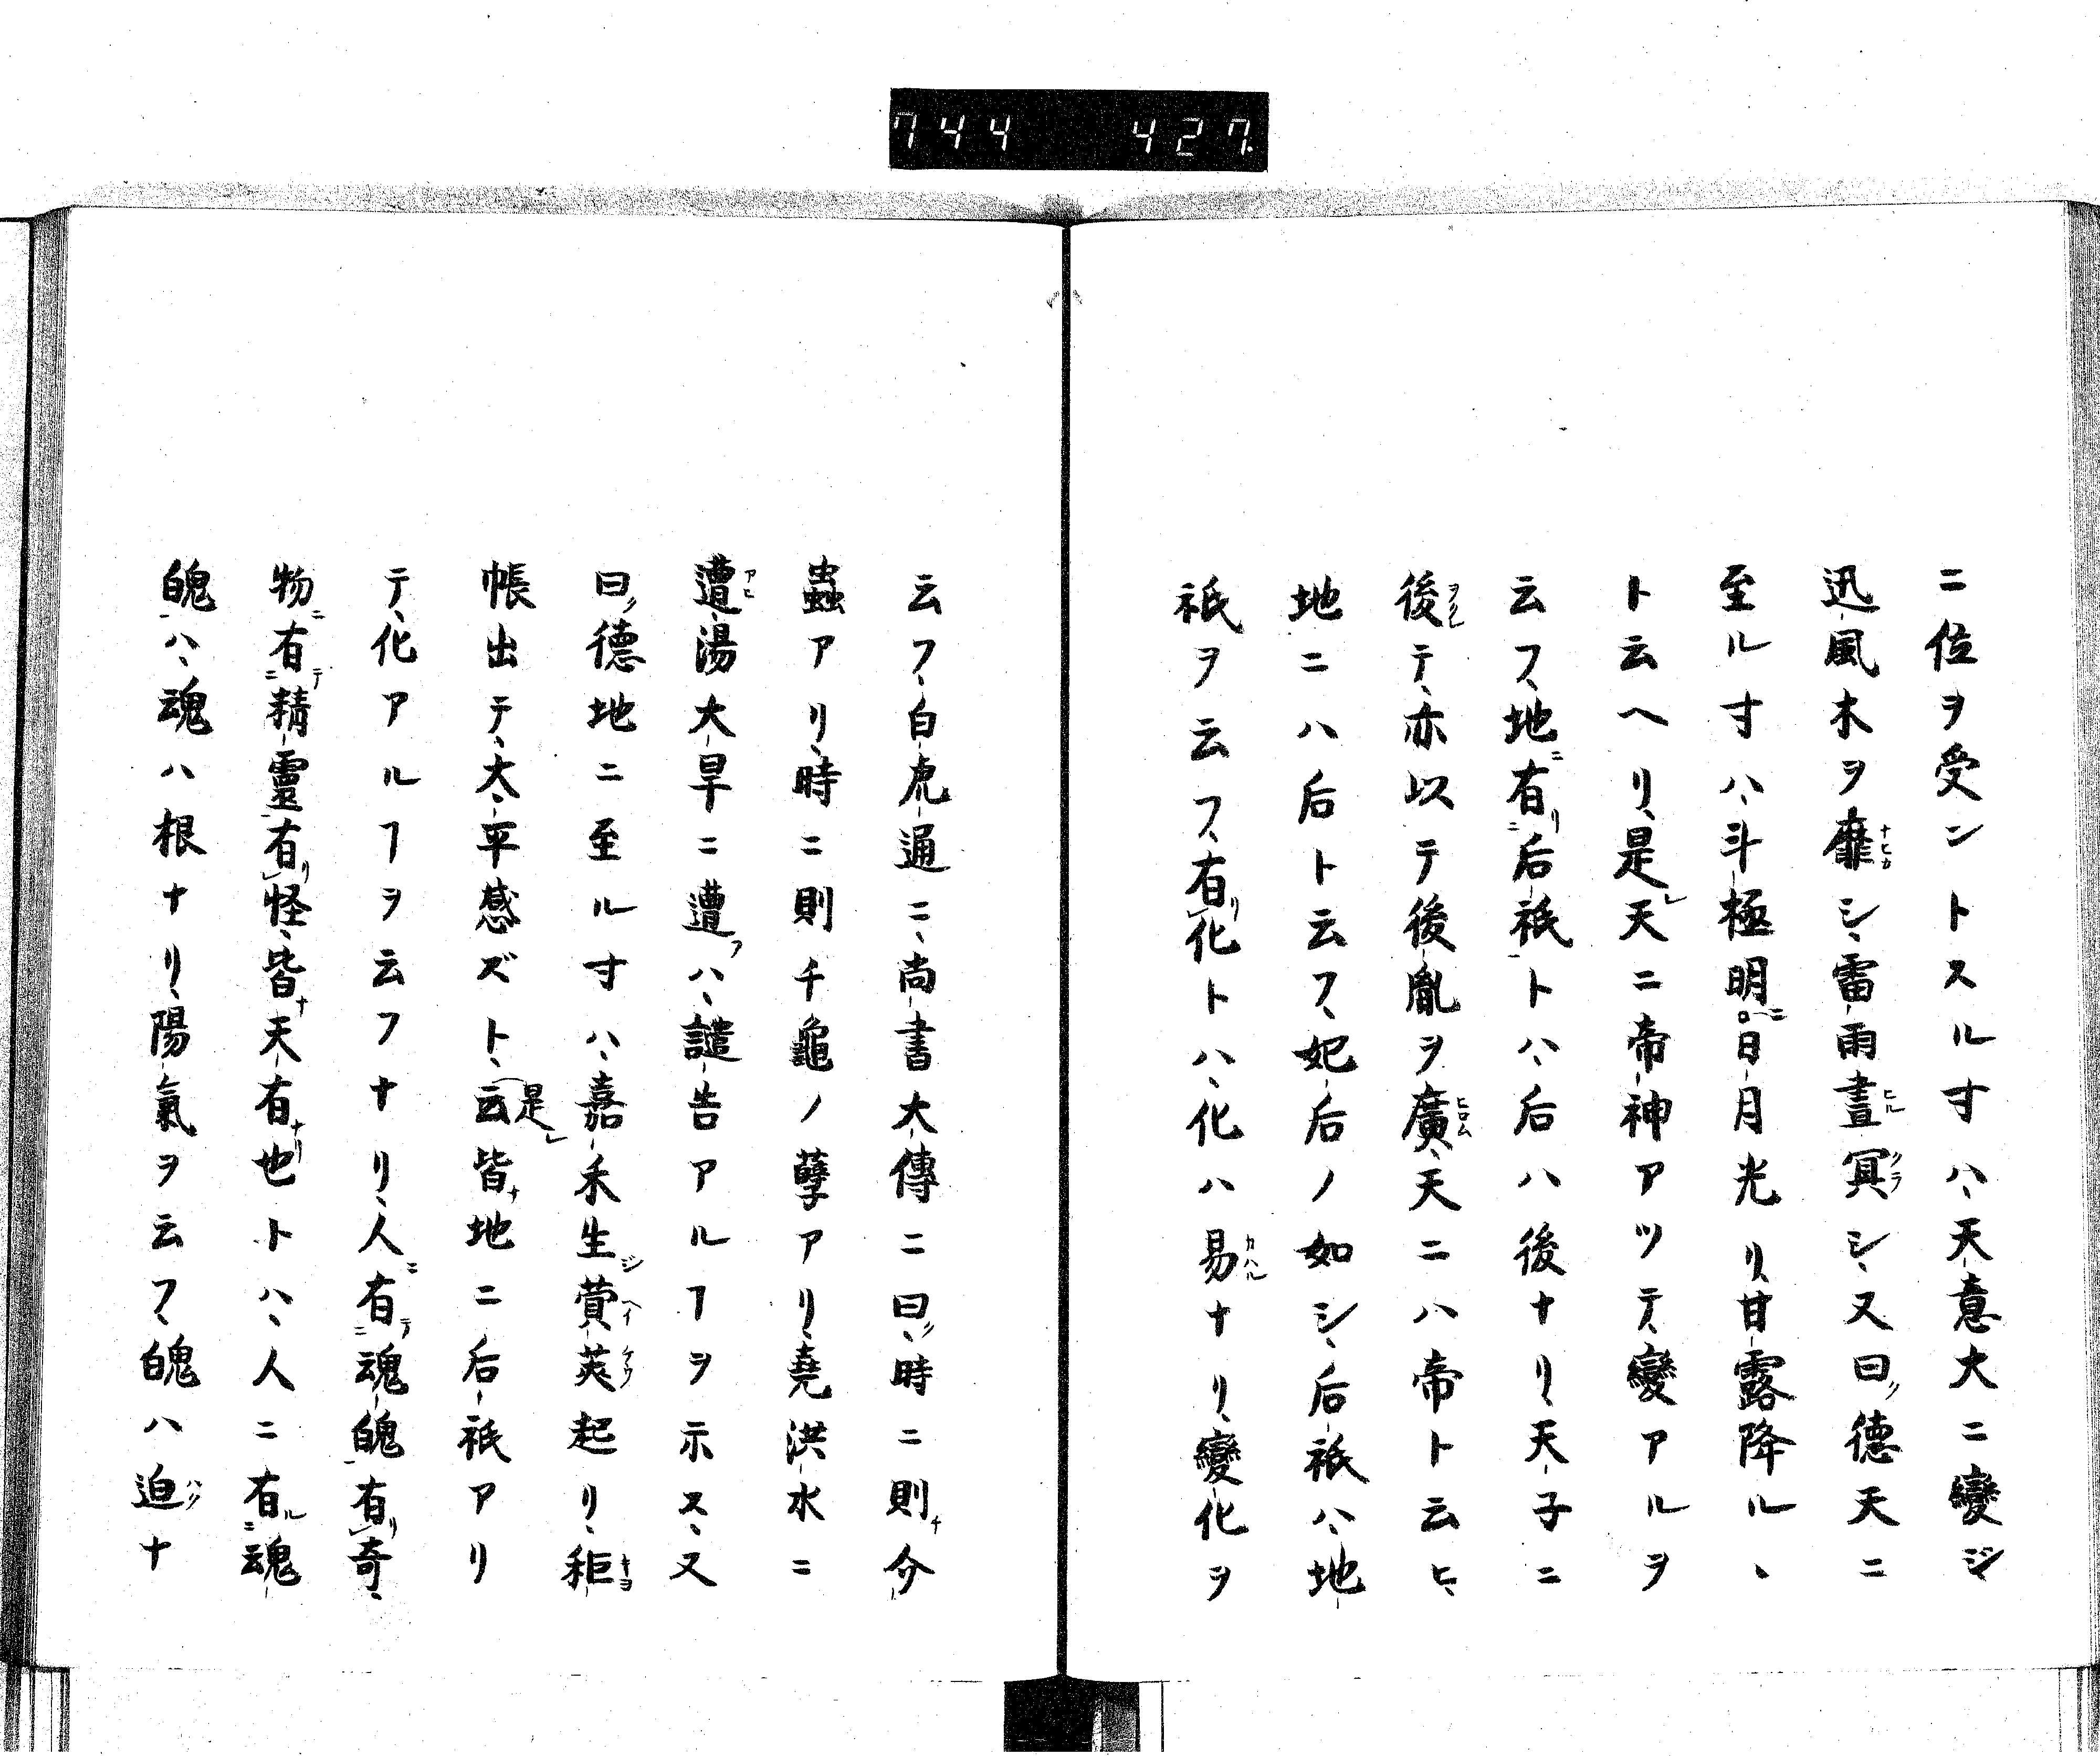 744 427
ニ位ヲ受ントスル寸ハ、天意大ニ變ジ、
迅風木ヲ靡シ、雷雨晝冥シ、又曰ク德天ニ
至ル寸ハ、斗極明ニ日月光リ、甘露降ル、
ト云ヘリ、是レ天ニ帝神アツテ、變アルヲ
云フ、地ニ有リ二后祇一トハ、后ハ後ナリ、天子ニ
後テ、亦以テ後胤ヲ廣、天ニハ帝ト云ヒ、
地ニハ后ト云フ、妃后ノ如シ、后祇ハ、地
祇ヲ云フ、有リレ化トハ、化ハ易ナリ、變化ヲ
云フ、白虎通ニ、尚書大傳ニ曰ク、時ニ則チ介
蟲アリ、時ニ則チ龜ノ孽アリ、堯洪水ニ
遭、湯大旱ニ遭フハ、譴告アルヿヲ示ス、又
曰ク德地ニ至ル寸ハ、嘉禾生ジ蓂莢起リ、秬
帳出テ、太平感ズト、云是レ皆ナ地ニ后祇アリ
テ、化アルヿヲ云フナリ、人ニ有テ二魂魄一有リレ奇、
物ニ有テ二精靈一有リレ怪、皆ナ天有ナリ也トハ、人ニ有ル二魂
魄一ハ、魂ハ根ナリ、陽氣ヲ云フ、魄ハ迫ナ